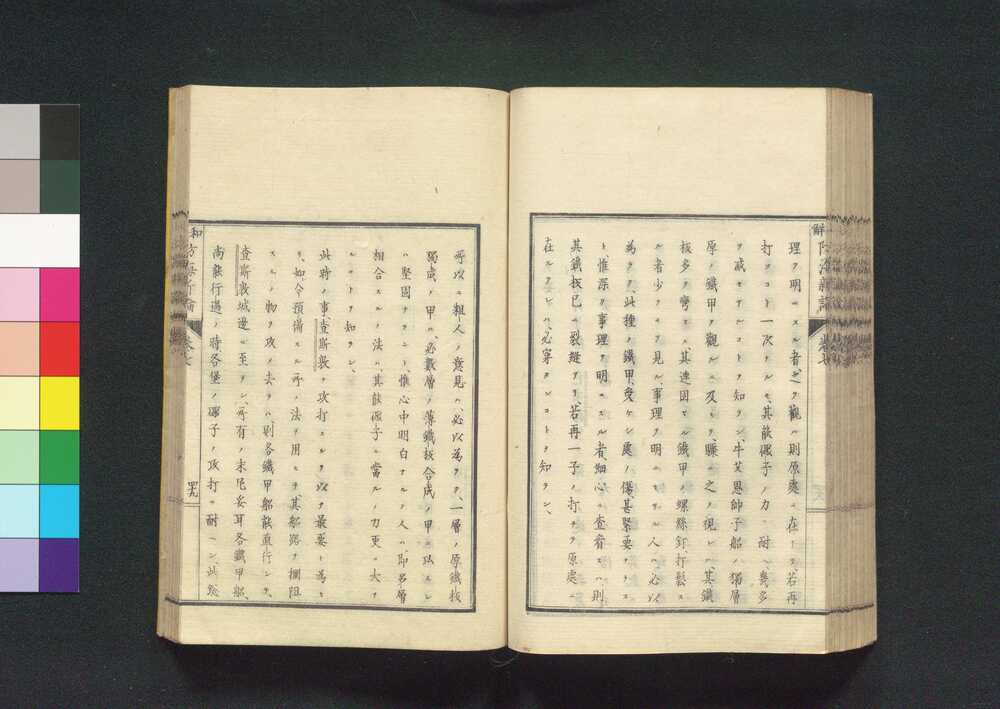 理ヲ明ニスル者之ヲ觀ハ則原處ニ在トモ若再
打ヲコト一次ナルモ其能礮子ノ力ニ耐ヘ幾多
ヲ减セサルコトヲ知ラン牛芟恩帥子船ノ獨層
厚ノ鐵甲ヲ觀ルニ及ヒ驟ニ之ヲ視レハ其鐵
板多ク彎ミ其連固セル鐵甲ノ螺絲釘打鬆ス
ル者少ナキヲ見ル事理ヲ明ニセサル人ハ必以
為ラク此種ノ鐵甲受ケシ處ノ傷甚緊要ナラス
ト惟深ク事理ヲ明ニスル者細心ニ查看セハ則
其鐵板已ニ裂縫アリ若再一子ノ打ヲ原處ニ
在ルアレハ必穿タレンコトヲ知ラン
所以ニ粗人ノ意見ハ必以為ラク一層ノ原鐵板
獨成ノ甲ハ必數層ノ薄鐵板合成ノ甲ニ以スレ
ハ堅固ナラント惟心中明白ナルノ人ハ即多層
相合スルノ法ハ其能礮子ニ當ルノ力更ニ大ナ
ルコトヲ知ラン
此時ノ事查斯敦ヲ攻打スルヲ以テ最要ト為ス
如今預備スル所ノ法ヲ用ヒテ其船路ヲ攔阻
スルノ物ヲ攻メ去ラハ則各鐵甲船能直行シテ
查斯敦城邊ニ至ラン所有ノ末尼妥耳各鐵甲船
尚能行過ノ時各堡ノ礮子ノ攻打ニ耐ヘン此総
四十九